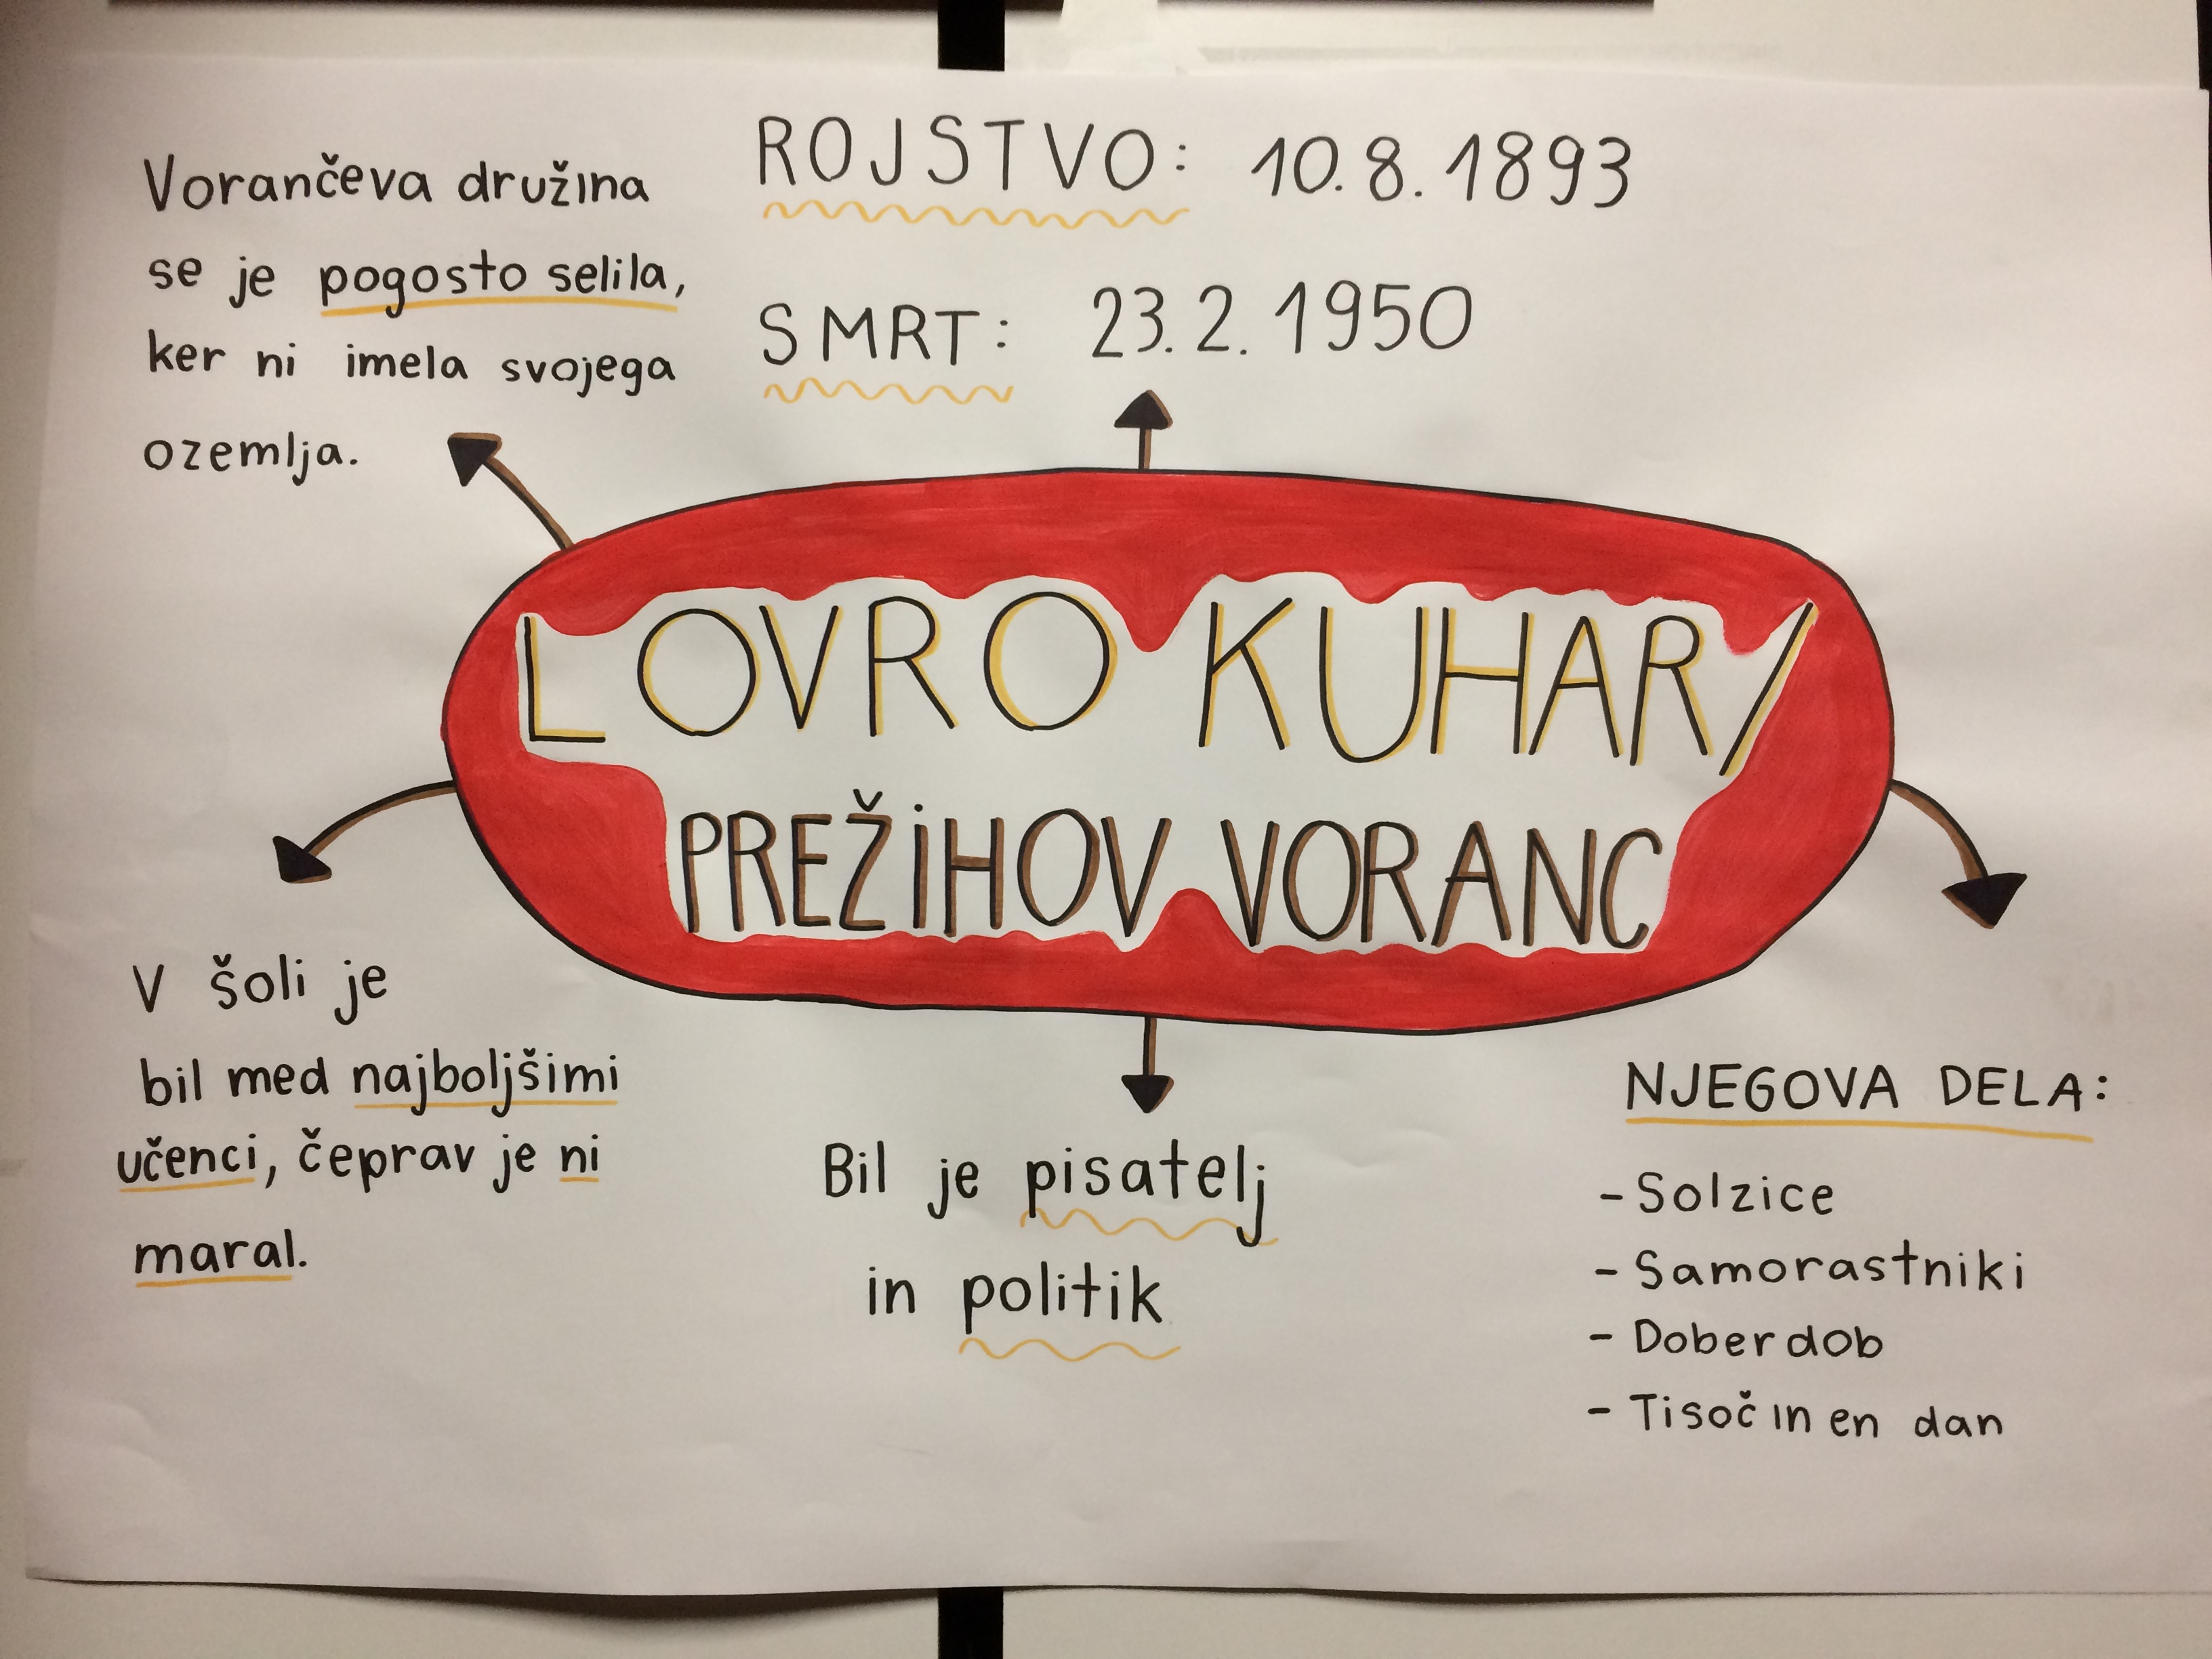 Vorančeva družina
se je pogosto selila,
ker ni imela svojega
ozemlja.
ROJSTVO: 10.8.1893
SMRT: 23.2.1950
LOVRO KUHAR/
PREŽIHOV VORANC
V šoli je
bil med najboljšimi
učenci, čeprav je ni
maral.
Bil je pisatelj
in politik
NJEGOVA DELA:
- Solzice
- Samorastniki
- Doberdob
- Tisoč in en dan